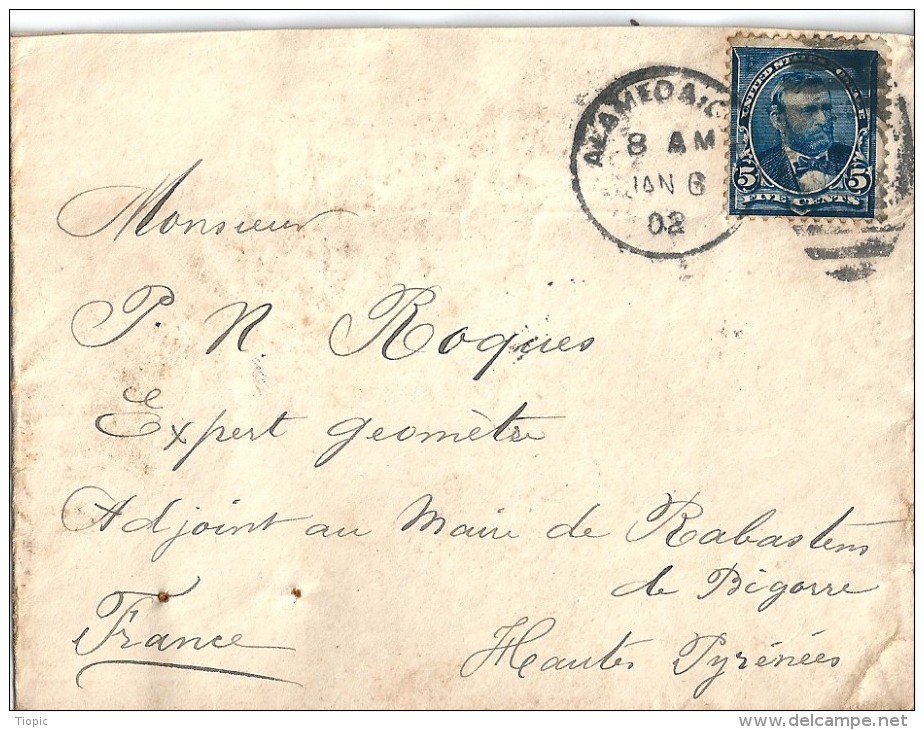 ALAMEDA, C
8 AM
JAN 6
02
UNITED STATES
5 5
FIVE CENTS
Monsieur
P. N. Roques
Expert géomètre
Adjoint au Maire de Rabastens
de Bigorre
Hautes Pyrénées
France
Tiopic
www.delcampe.net